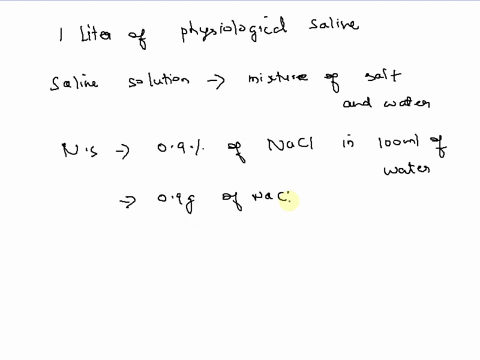 1 Liter of physiological saline
Saline solution → mixture of salt
and water
N.S → 0.9% of NaCl in 100ml of
water
→ 0.9g of NaCl